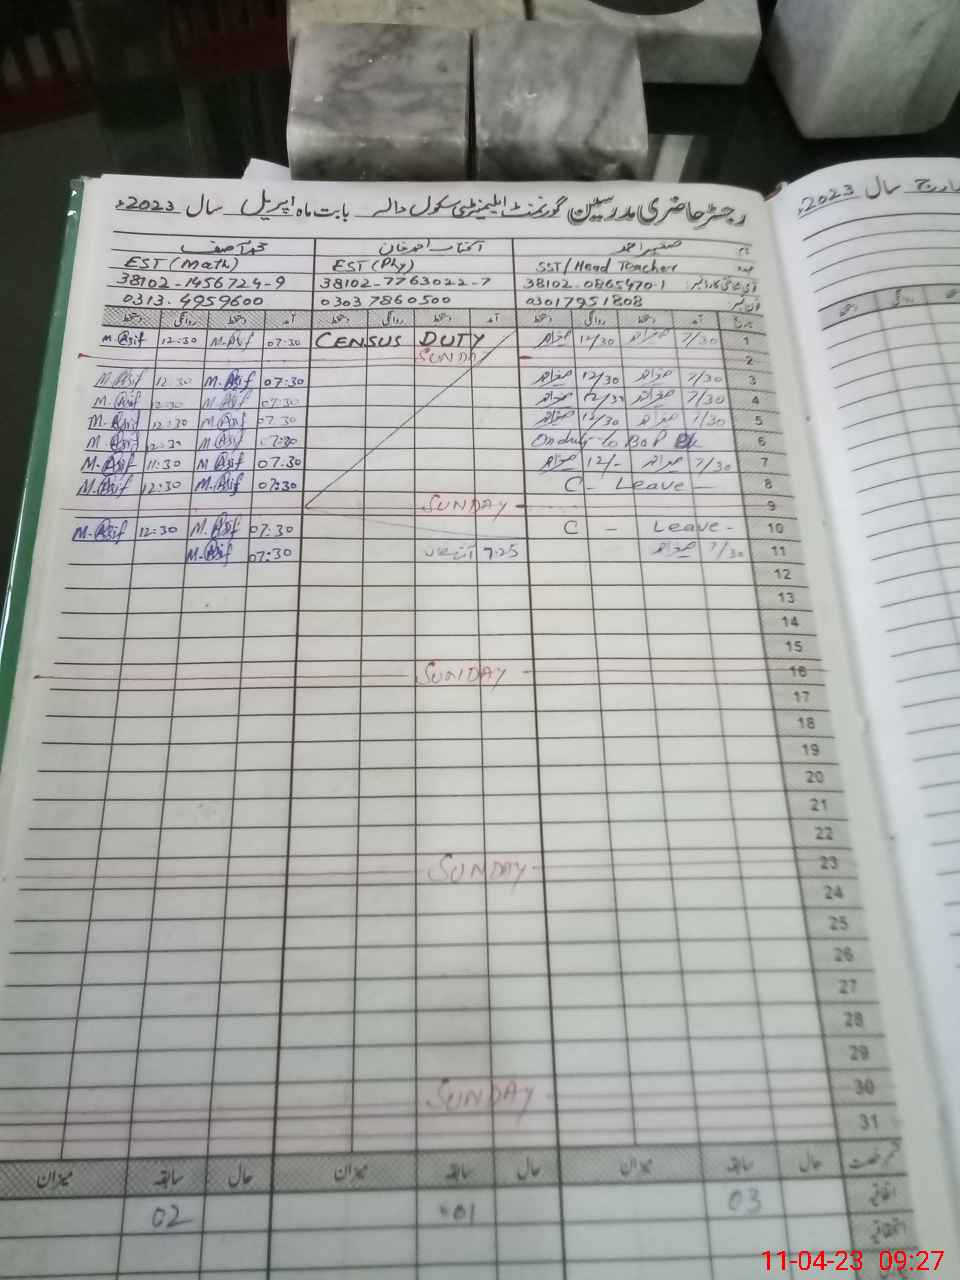 رجسٹر حاضری مدرسین گورنمنٹ ایلیمنٹری سکول دالہ بابت ماہ اپریل سال 2023ء
مارچ سال 2023ء
نام صغیر احمد آفتاب احمد خان محمد آصف
عہدہ SST/Head Teacher EST (Phy) EST (Math)
38102-0865470-1 38102-7763022-7 38102-1456724-9
فون نمبر 03017951808 03037860500 0313-4959600
تاریخ آمد دستخط روانگی دستخط آمد دستخط روانگی دستخط آمد دستخط روانگی دستخط
1 7/30 12/30 CENSUS DUTY 07:30 M.Asif 12:30 M.Asif
2 SUNDAY
3 7/30 12/30 07:30 M.Asif 12:30 M.Asif
4 7/30 12/30 07:30 M.Asif 12:30 M.Asif
5 7/30 12/30 07:30 M.Asif 12:30 M.Asif
6 On duty to BoP 07:30 M.Asif 12:30 M.Asif
7 7/30 12/- 07:30 M.Asif 11:30 M.Asif
8 C - Leave - 07:30 M.Asif 12:30 M.Asif
9 SUNDAY
10 C - Leave - 07:30 M.Asif 12:30 M.Asif
11 7/30 7:25 07:30 M.Asif
12
13
14
15
16 SUNDAY
17
18
19
20
21
22
23 SUNDAY
24
25
26
27
28
29
30 SUNDAY
31
حال سابقہ میزان حال سابقہ میزان حال سابقہ میزان
اتفاقیہ 03 01 02
11-04-23 09:27